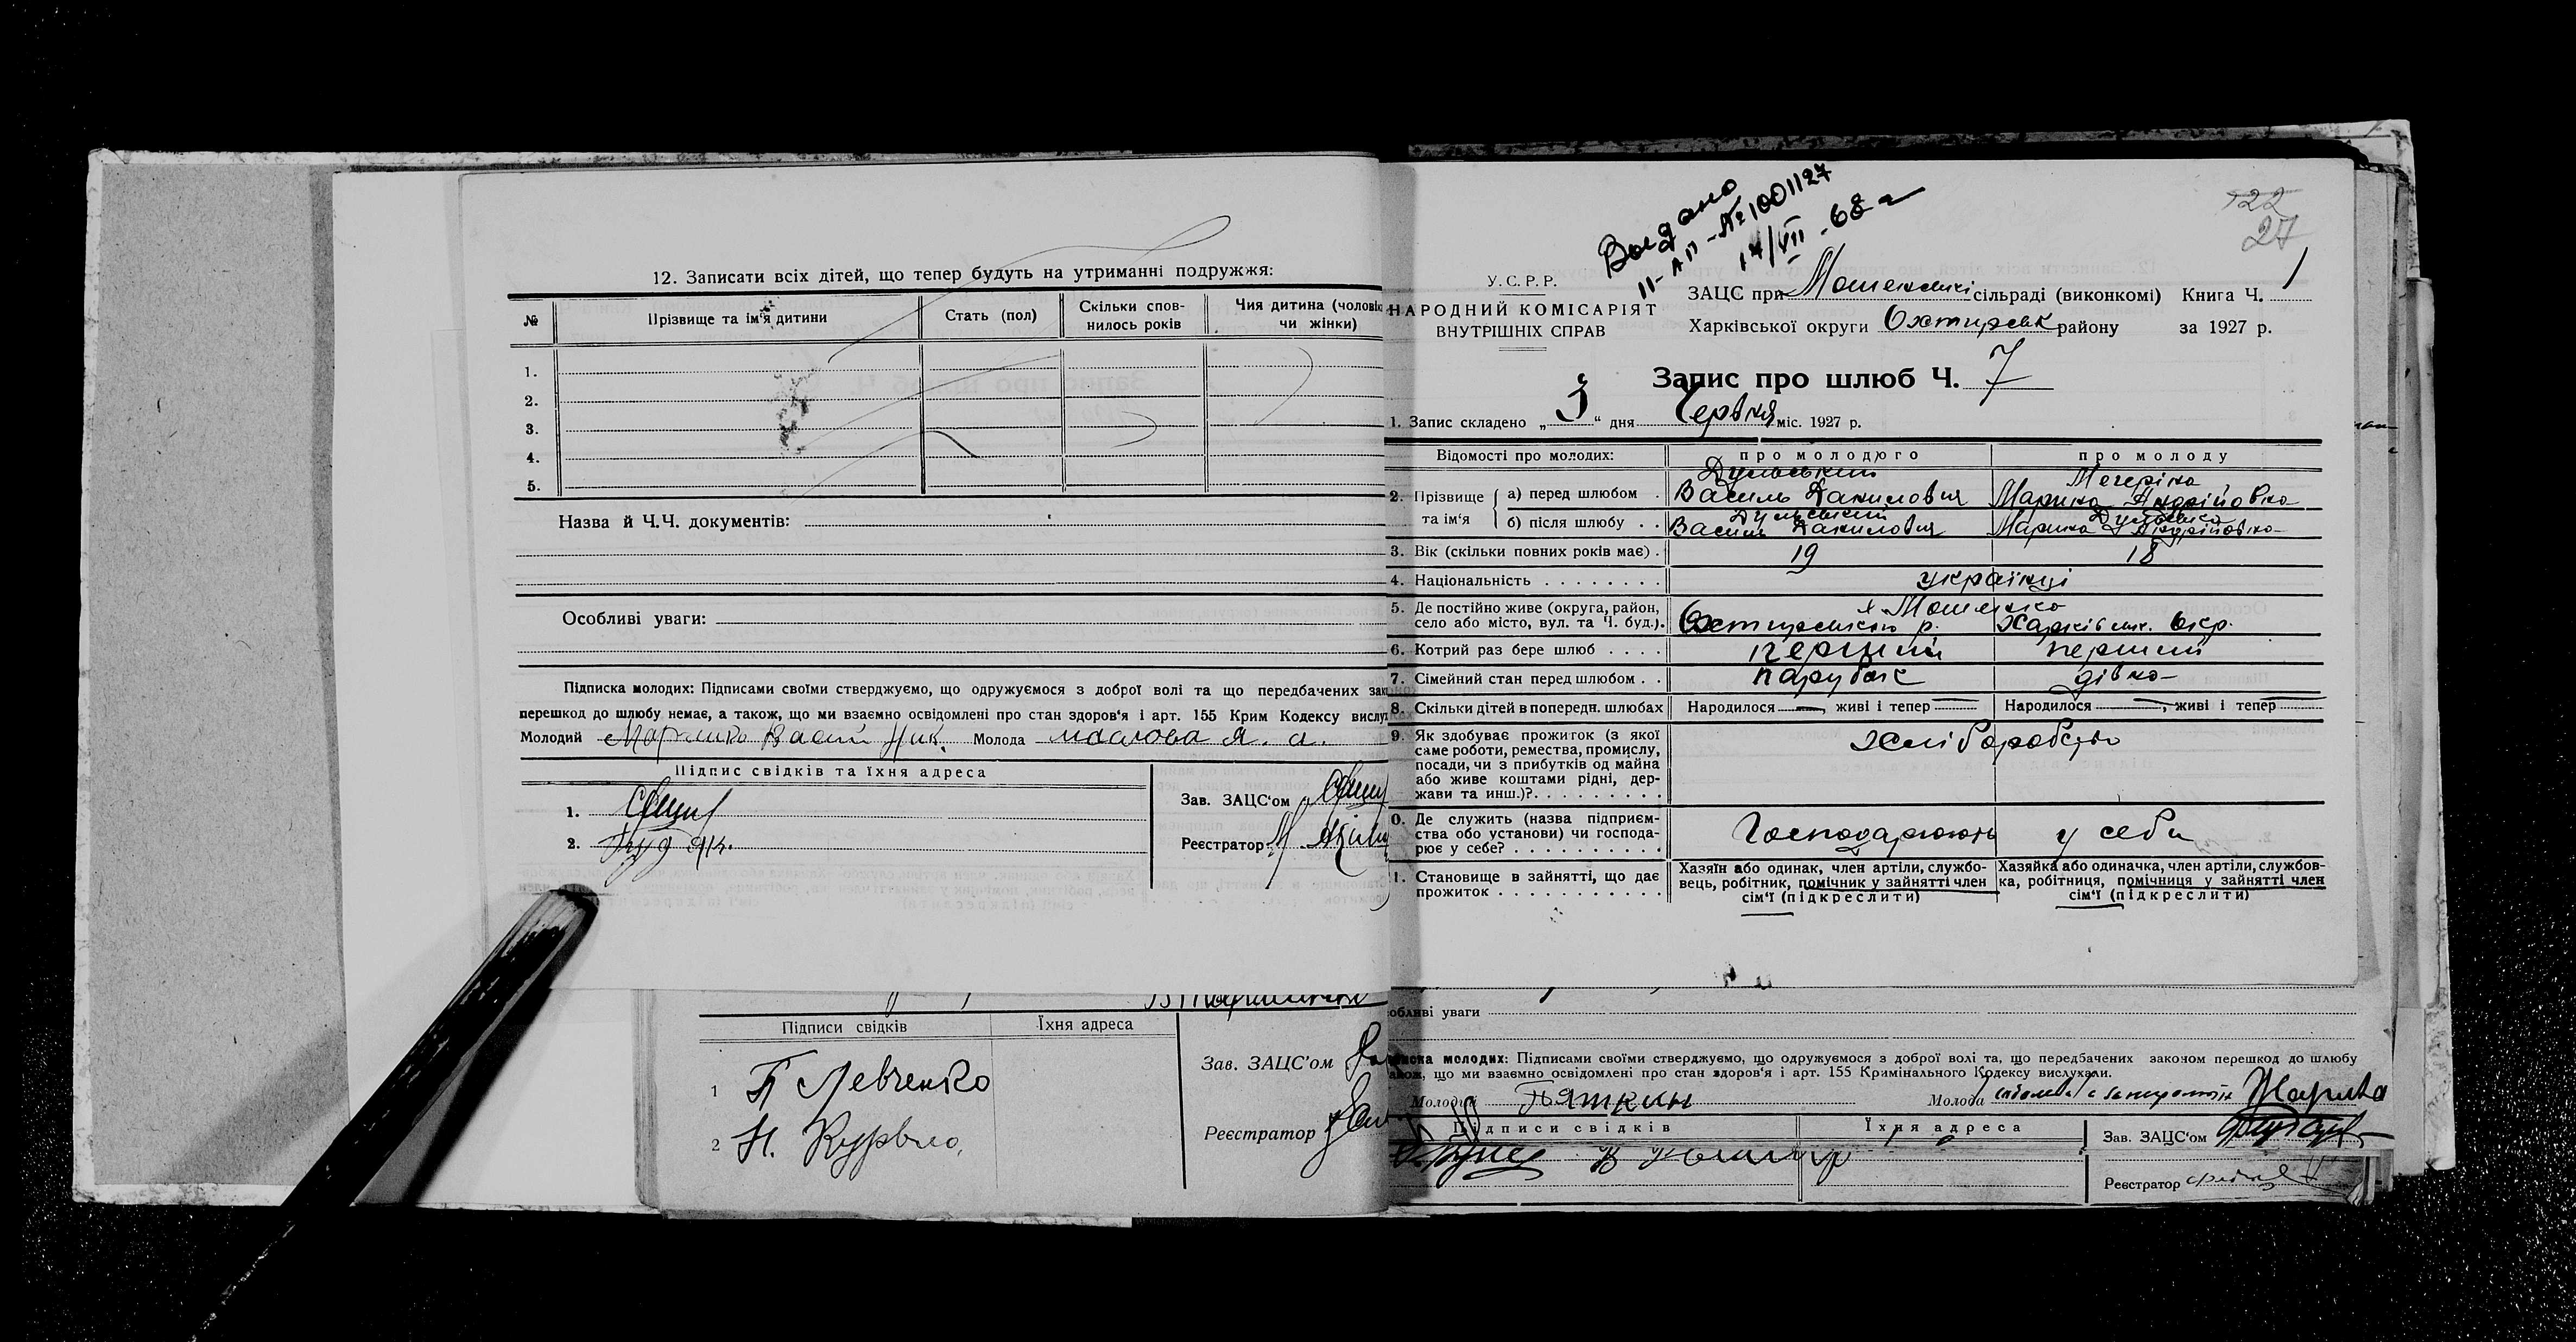 12. Записати всіх дітей, що тепер будуть на утриманні подружжя:
№ Прізвище та ім'я дитини Стать (пол) Скільки спов- нилось років Чия дитина (чоловіка чи жінки)
1.
2.
3.
4.
5.
Назва й Ч.Ч. документів:
Особливі уваги:
Підписка молодих: Підписами своїми стверджуємо, що одружуємося з доброї волі та що передбачених зак
перешкод до шлюбу немає, а також, що ми взаємно освідомлені про стан здоров'я і арт. 155 Крим Кодексу вислу
Молодий Молода маслова Я. А.
Підпис свідків та їхня адреса
1.
2.
Зав. ЗАЦС'ом
Реєстратор
Підписи свідків Їхня адреса
1 П Левченко
2 Н.
Зав. ЗАЦС'ом
Реєстратор
Выдано
II-АП-№1001127
17/VII-68 г
122
27
У.С.Р.Р.
НАРОДНИЙ КОМІСАРІЯТ
ВНУТРІШНІХ СПРАВ
ЗАЦС при сільраді (виконкомі) Книга Ч. 1
Харківської округи Охтирськ району за 1927 р.
Запис про шлюб Ч. 7
1. Запис складено „3“ дня Червня міс. 1927 р.
Відомості про молодих: про молодого про молоду
2. Прізвище та ім'я
а) перед шлюбом . Дульський Василь Данилович Марина Андрійовна
б) після шлюбу . . Дульський Василь Данилович Дульська Марина Андрійовна
3. Вік (скільки повних років має) . 19 18
4. Національність . . . . . . . . українці
5. Де постійно живе (округа, район,
село або місто, вул. та Ч. буд.). Охтирського р. Харківськ. Окр.
6. Котрий раз бере шлюб . . . . перший перший
7. Сімейний стан перед шлюбом . . парубок дівка
8. Скільки дітей в попередн. шлюбах Народилося — живі і тепер — Народилося —, живі і тепер —
9. Як здобуває прожиток (з якої
саме роботи, ремества, промислу,
посади, чи з прибутків од майна
або живе коштами рідні, дер-
жави та инш.)?. . . . . . . . . хліборобство
0. Де служить (назва підприєм-
ства обо установи) чи господа-
рює у себе? . . . . . . . . . . Господарюють у себе
1. Становище в зайнятті, що дає
прожиток . . . . . . . . . . . .
Хазяїн або одинак, член артіли, службо-
вець, робітник, помічник у зайнятті член
сім'ї (підкреслити)
Хазяйка або одиначка, член артіли, службов-
ка, робітниця, помічниця у зайнятті член
сім'ї (підкреслити)
обливі уваги
писка молодих: Підписами своїми стверджуємо, що одружуємося з доброї волі та, що передбачених законом перешкод до шлюбу
акож, що ми взаємно освідомлені про стан здоров'я і арт. 155 Кримінального Кодексу вислухали.
Молодий Пяткин Молода
Підписи свідків Їхня адреса
Зав. ЗАЦС'ом
Реєстратор